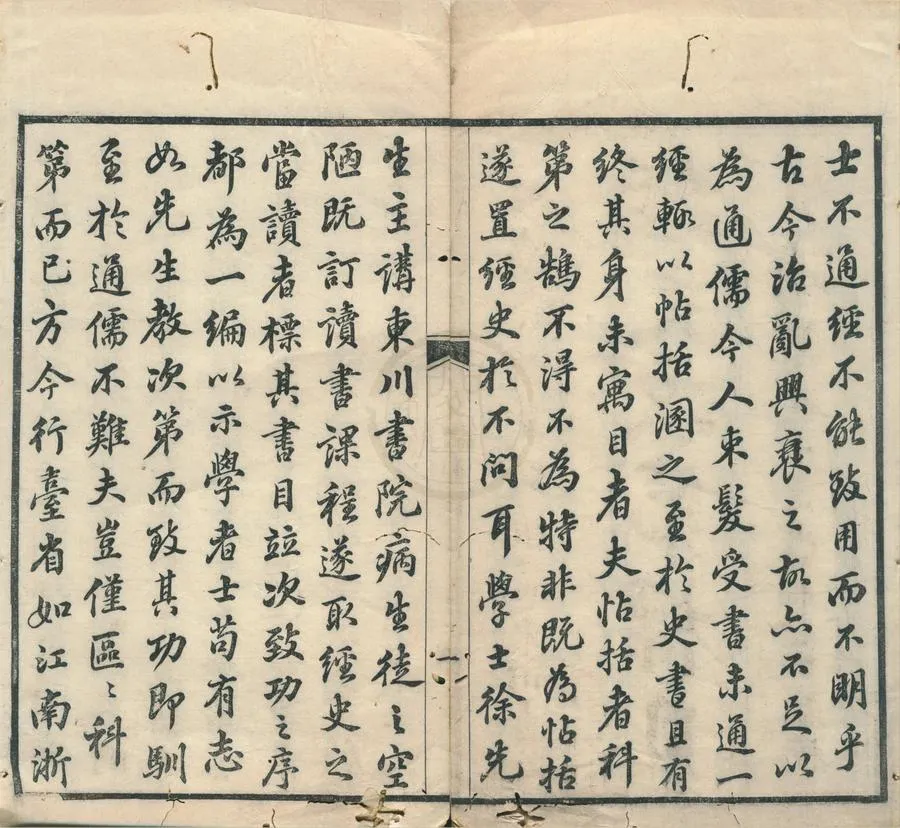 士不通經不能致用而不明乎
古今治亂興衰之故亦不足以
為通儒今人束髮受書未通一
經輒以帖括溷之至於史書且有
終其身未寓目者夫帖括者科
第之鵠不得不為特非既為帖括
遂置經史於不問耳學士徐先
生主講東川書院病生徒之空
陋既訂讀書課程遂取經史之
當讀者標其書目竝次致功之序
都為一編以示學者士苟有志
如先生教次第而致其功即馴
至於通儒不難夫豈僅區〻科
第而已方今行臺省如江南浙
一